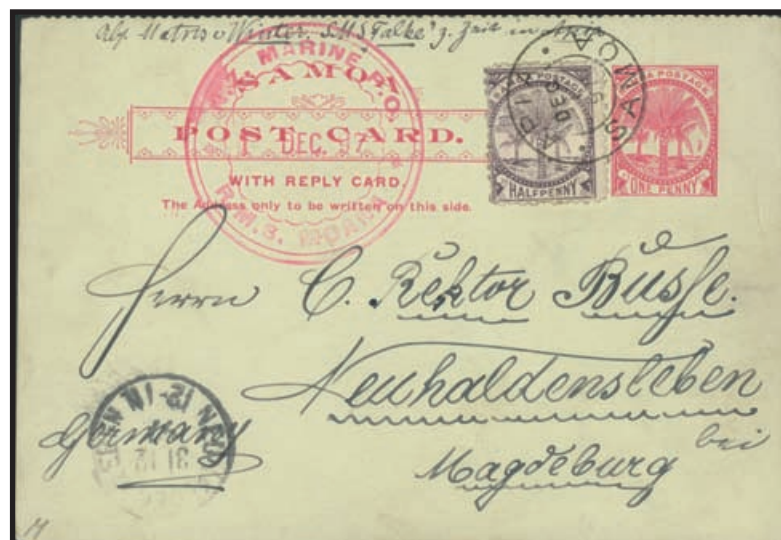 Abs. Matrose Winter. S.M.S. "Falke" z. Zeit in Apia
MARINE P.O.
R.M.S. MOANA
DEC. 97
SAMOA
POST CARD.
WITH REPLY CARD.
The Address only to be written on this side.
SAMOA POSTAGE
HALFPENNY
SAMOA POSTAGE
ONE PENNY
SAMOA
APIA
DEC
Herrn C. Rektor Busse.
Neuhaldensleben
bei
Magdeburg
Germany
31 12
12-1N